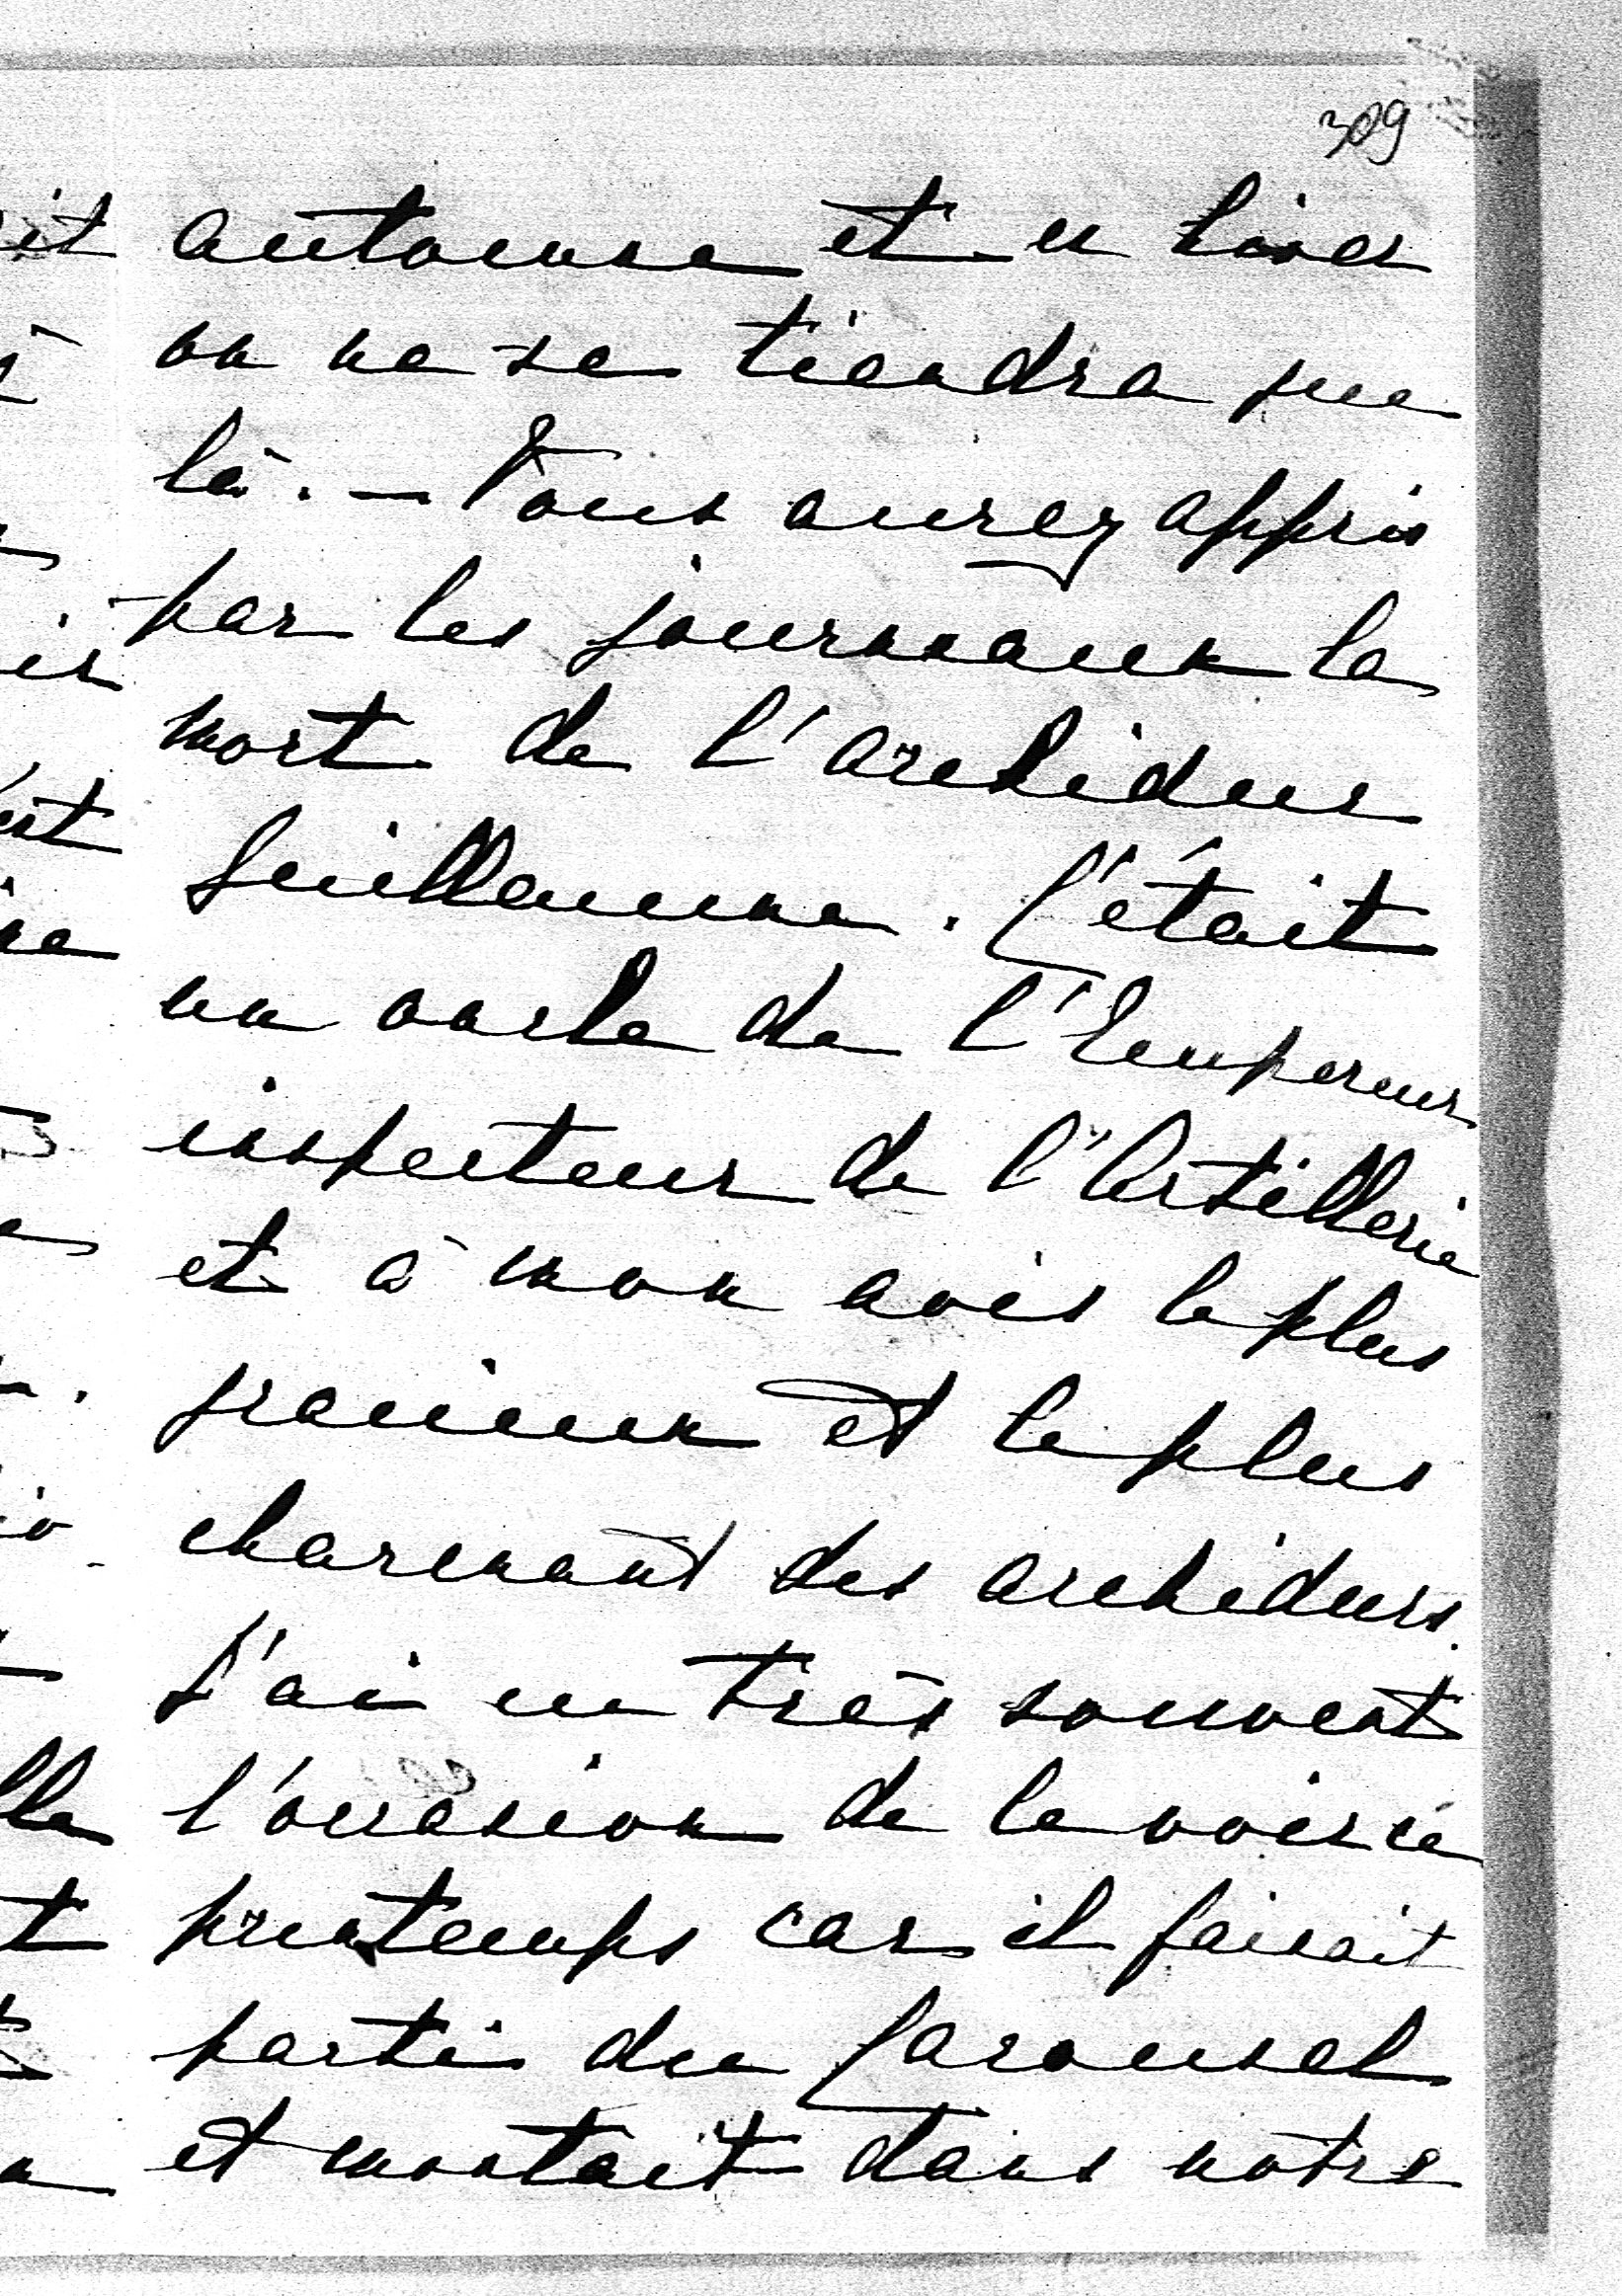 309
automne et en hiver
on ne se tiendra que
là. — Vous aurez appris
par les journaux la
mort de l'archiduc
Guillaume. C'était
un oncle de l'Empereur
inspecteur de l'Artillerie
et à mon avis le plus
gracieux et le plus
charmant des archiducs.
J'ai eu très souvent
l'occasion de le voir ce
printemps car il faisait
partie du Carousel
et montait dans notre